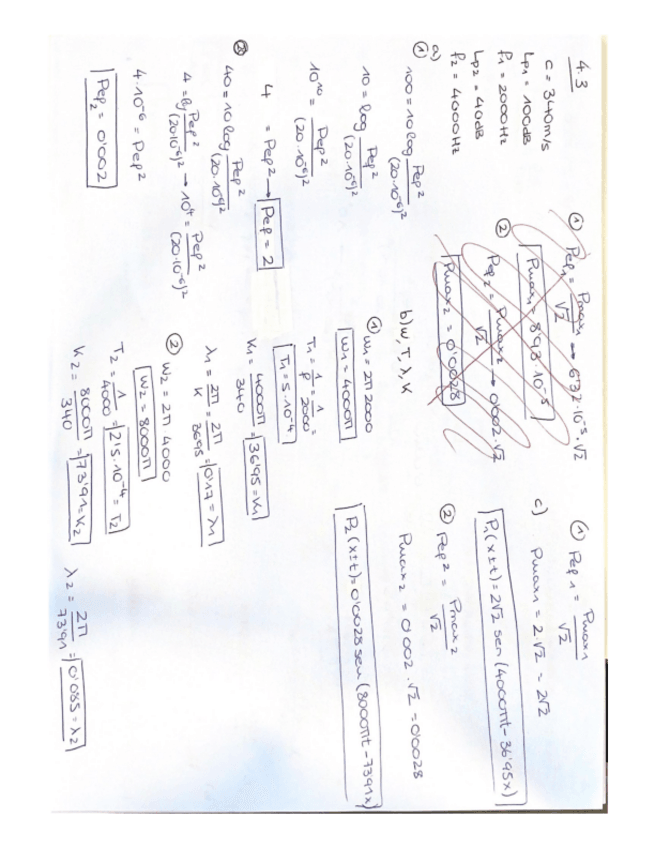 4.3
c = 340m/s
Lp1 = 100dB
f1 = 2000Hz
Lp2 = 40dB
f2 = 4000Hz
a)
①
100 = 10log Pef² / (20·10⁻⁶)²
10 = log Pef² / (20·10⁻⁶)²
10¹⁰ = Pef² / (20·10⁻⁶)²
4 = Pef² → Pef = 2
②
40 = 10log Pef² / (20·10⁻⁶)²
4 = log Pef² / (20·10⁻⁶)² → 10⁴ = Pef² / (20·10⁻⁶)²
4·10⁻⁶ = Pef²
Pef2 = 0'002
① Pef1 = Pmax1 / √2 → 6'32·10⁻⁵·√2
Pmax1 = 8'93·10⁻⁵
② Pef2 = Pmax2 / √2 → 0'002·√2
Pmax2 = 0'0028
b) w, T, λ, K
① w1 = 2π 2000
w1 = 4000π
T1 = 1/f = 1/2000 =
T1 = 5·10⁻⁴
K1 = 4000π / 340 = 36'95 = K1
λ1 = 2π / K = 2π / 3695 = 0'17 = λ1
② w2 = 2π·4000
w2 = 8000π
T2 = 1 / 4000 = 2'5·10⁻⁴ = T2
K2 = 8000π / 340 = 73'91 = K2
λ2 = 2π / 73'91 = 0'085 = λ2
c)
① Pef1 = Pmax1 / √2
Pmax1 = 2·√2 = 2√2
P1(x±t) = 2√2 sen (4000πt - 36'95x)
② Pef2 = Pmax2 / √2
Pmax2 = 0'002·√2 = 0'0028
P2(x±t) = 0'0028 sen (8000πt - 7391x)